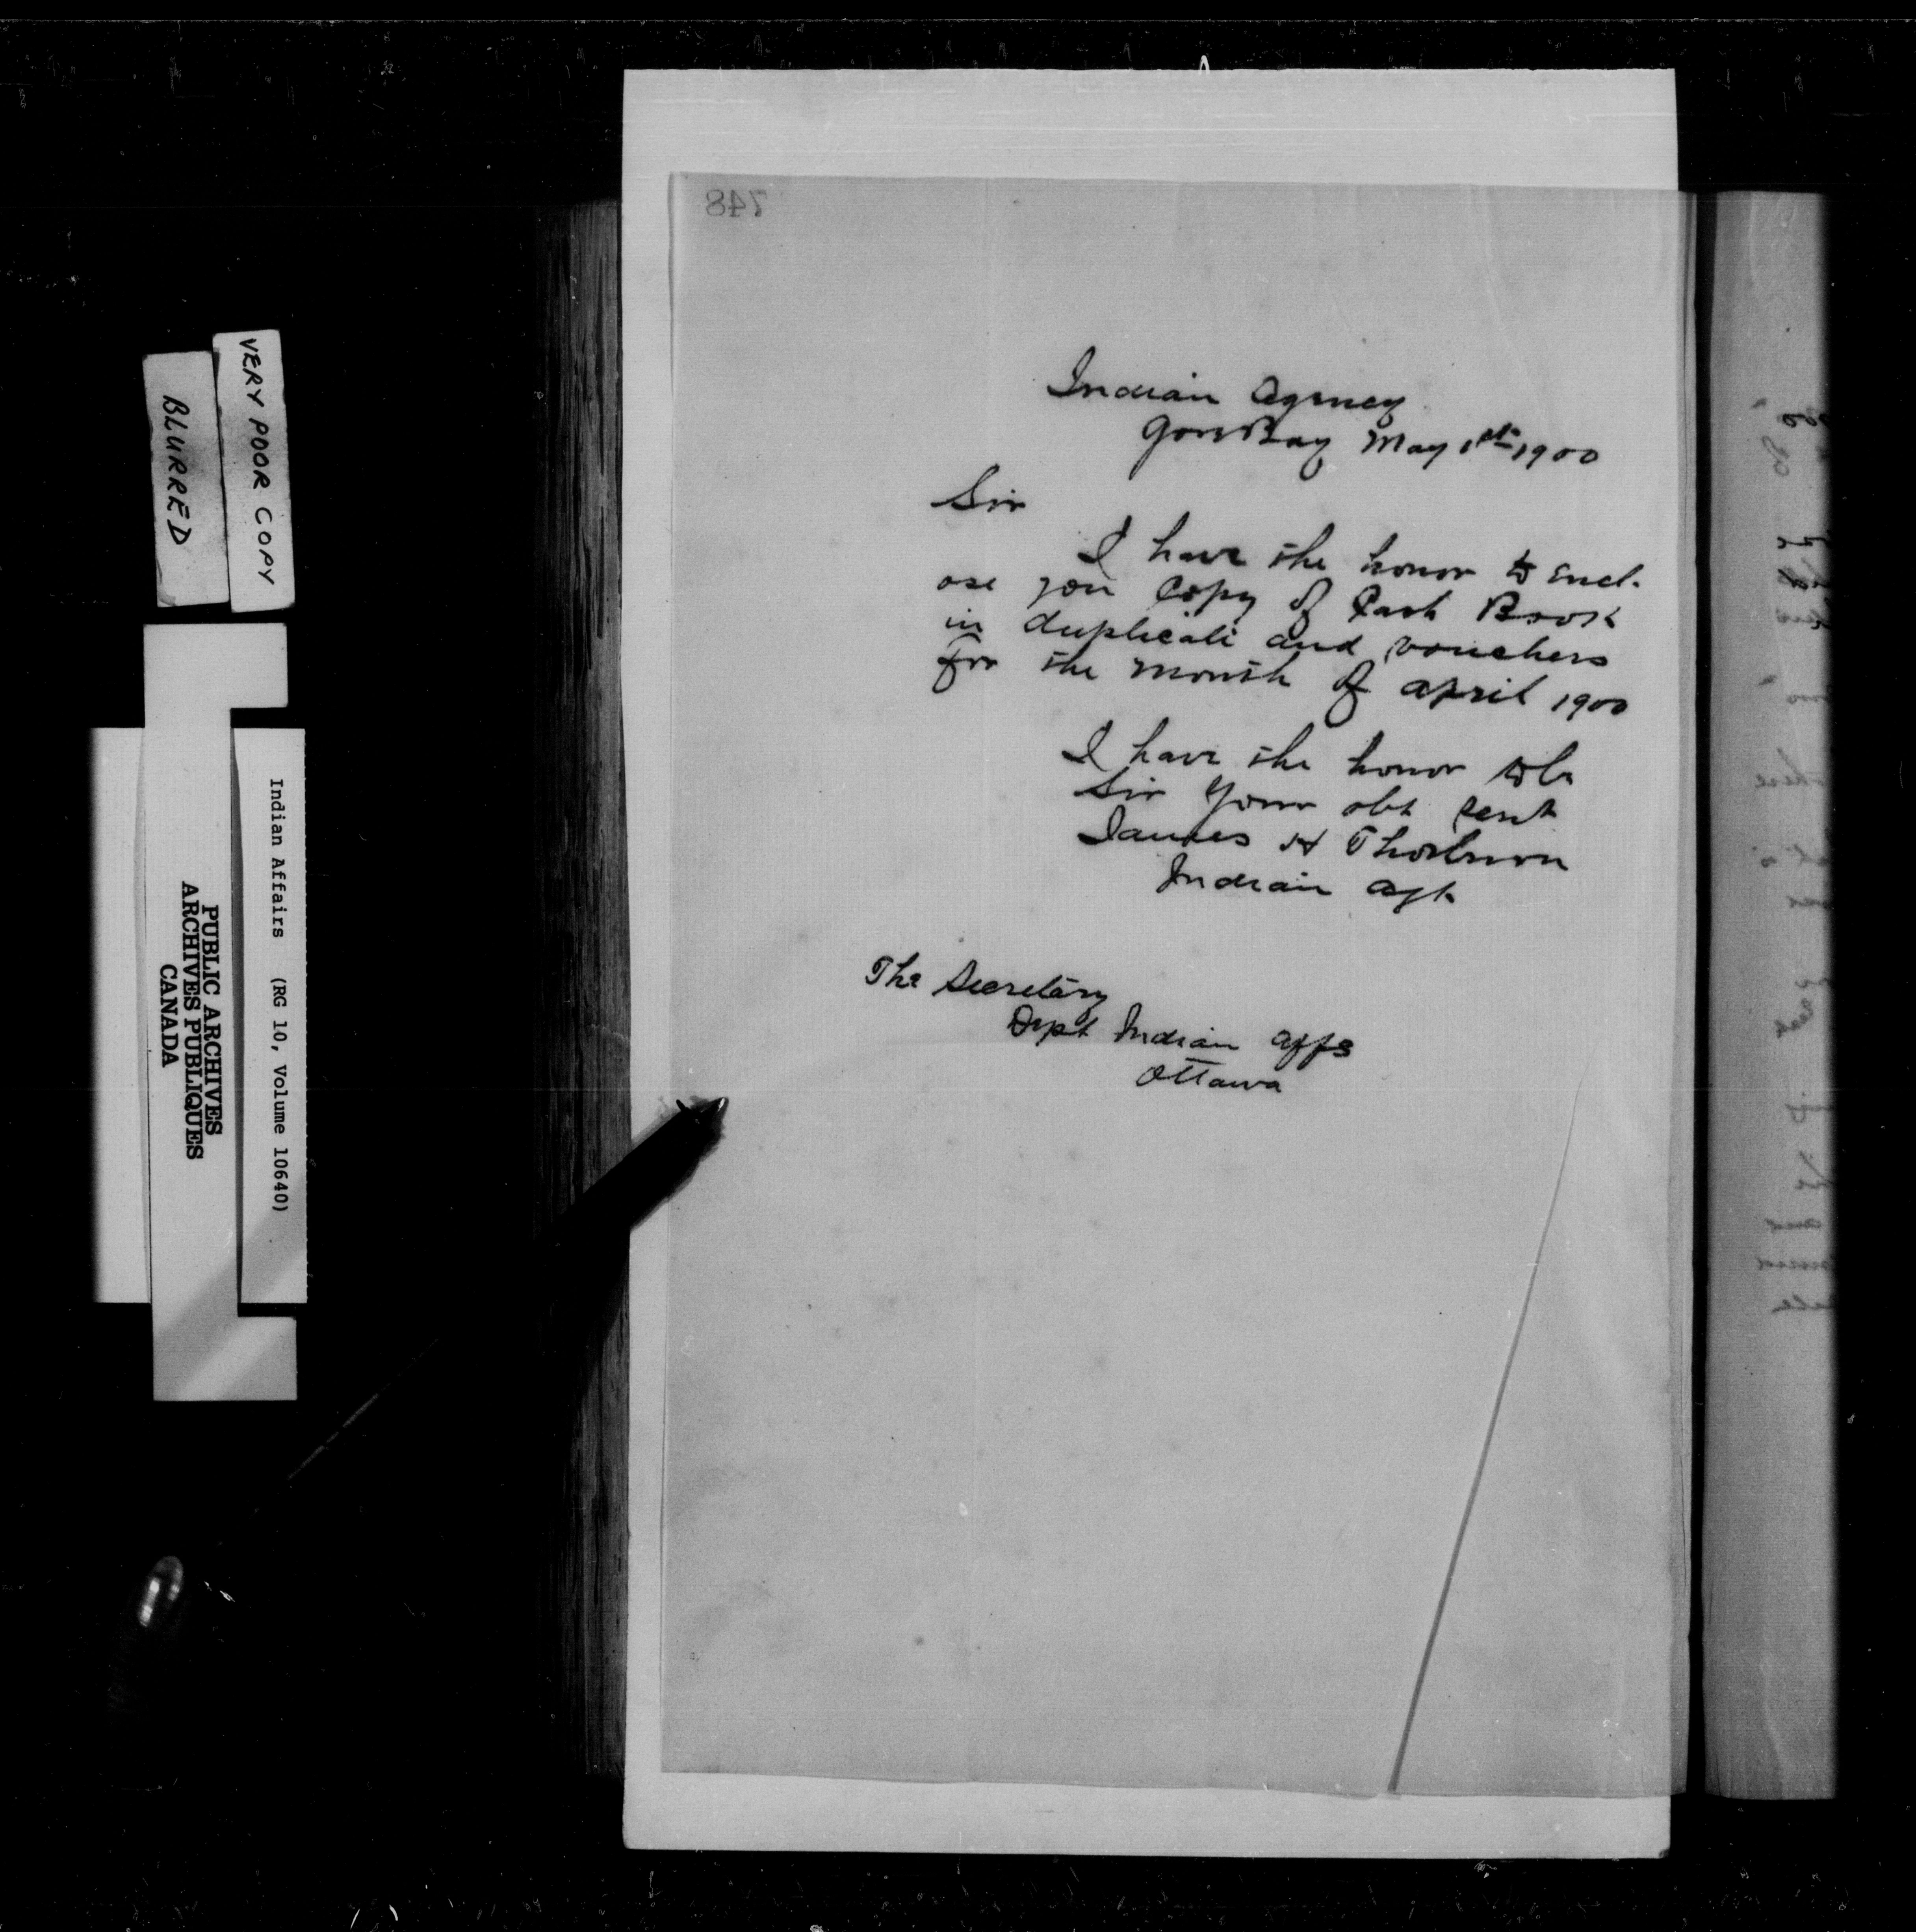 748
Indian Agency
Gore Bay May 1st 1900
Sir
I have the honor to encl-
ose you Copy of Cash Book
in duplicate and vouchers
for the month of April 1900
I have the honor to be
Sir Your obt servt
James H Thorburn
Indian Agt
The Secretary
Dept Indian Affs
Ottawa
VERY POOR COPY
BLURRED
Indian Affairs (RG 10, Volume 10640)
PUBLIC ARCHIVES
ARCHIVES PUBLIQUES
CANADA